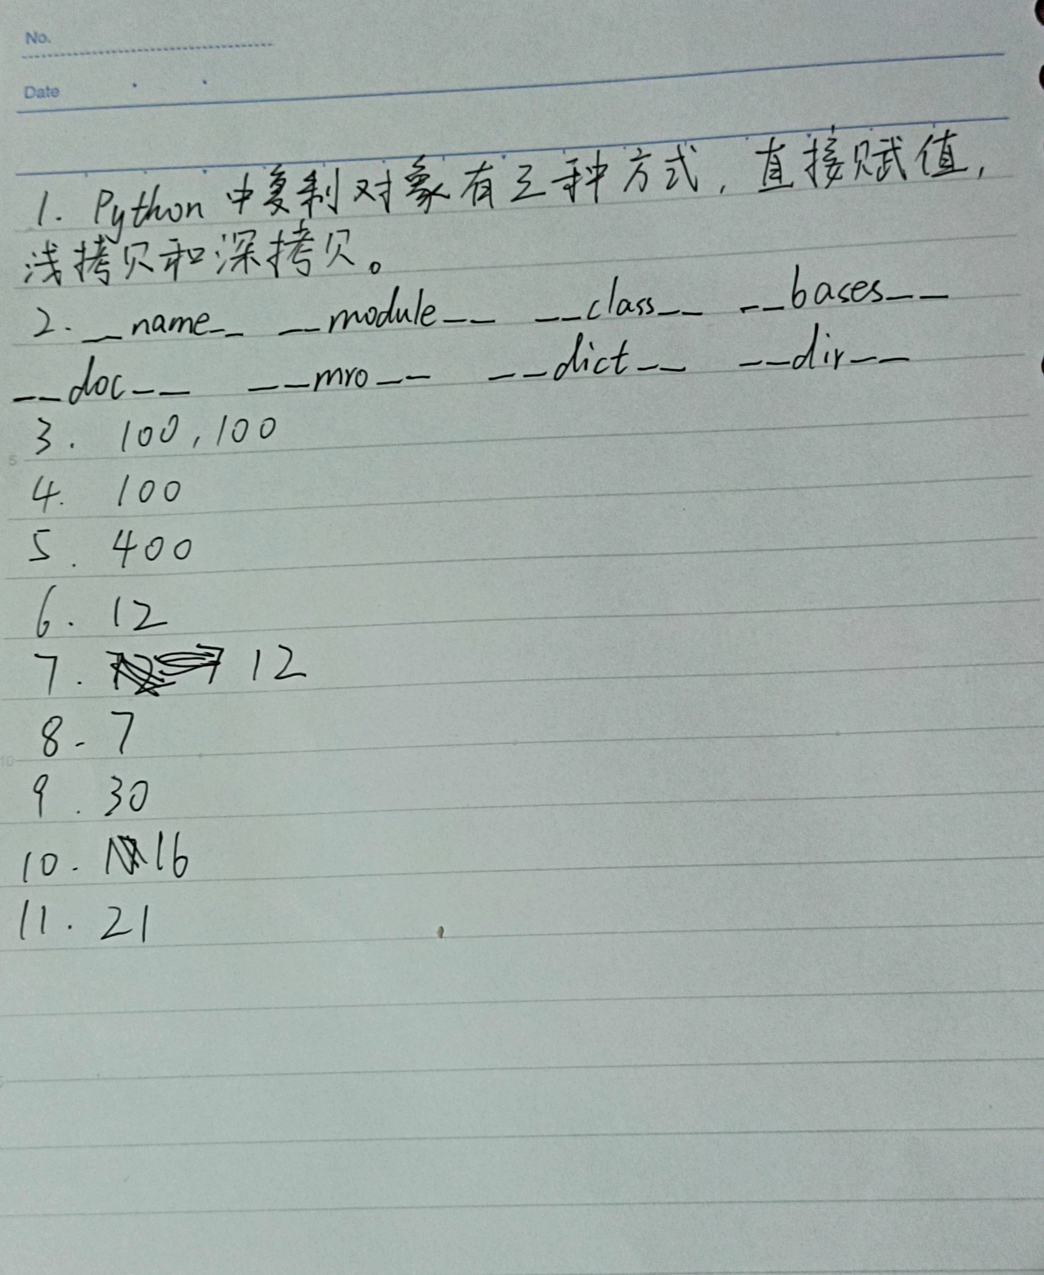 No.
Date
1. Python 中复制对象有三种方式，直接赋值，
浅拷贝和深拷贝。
2. __name__ __module__ __class__ __bases__
__doc__ __mro__ __dict__ __dir__
3. 100,100
4. 100
5. 400
6. 12
7. 12
8. 7
9. 30
10. 16
11. 21
5
10